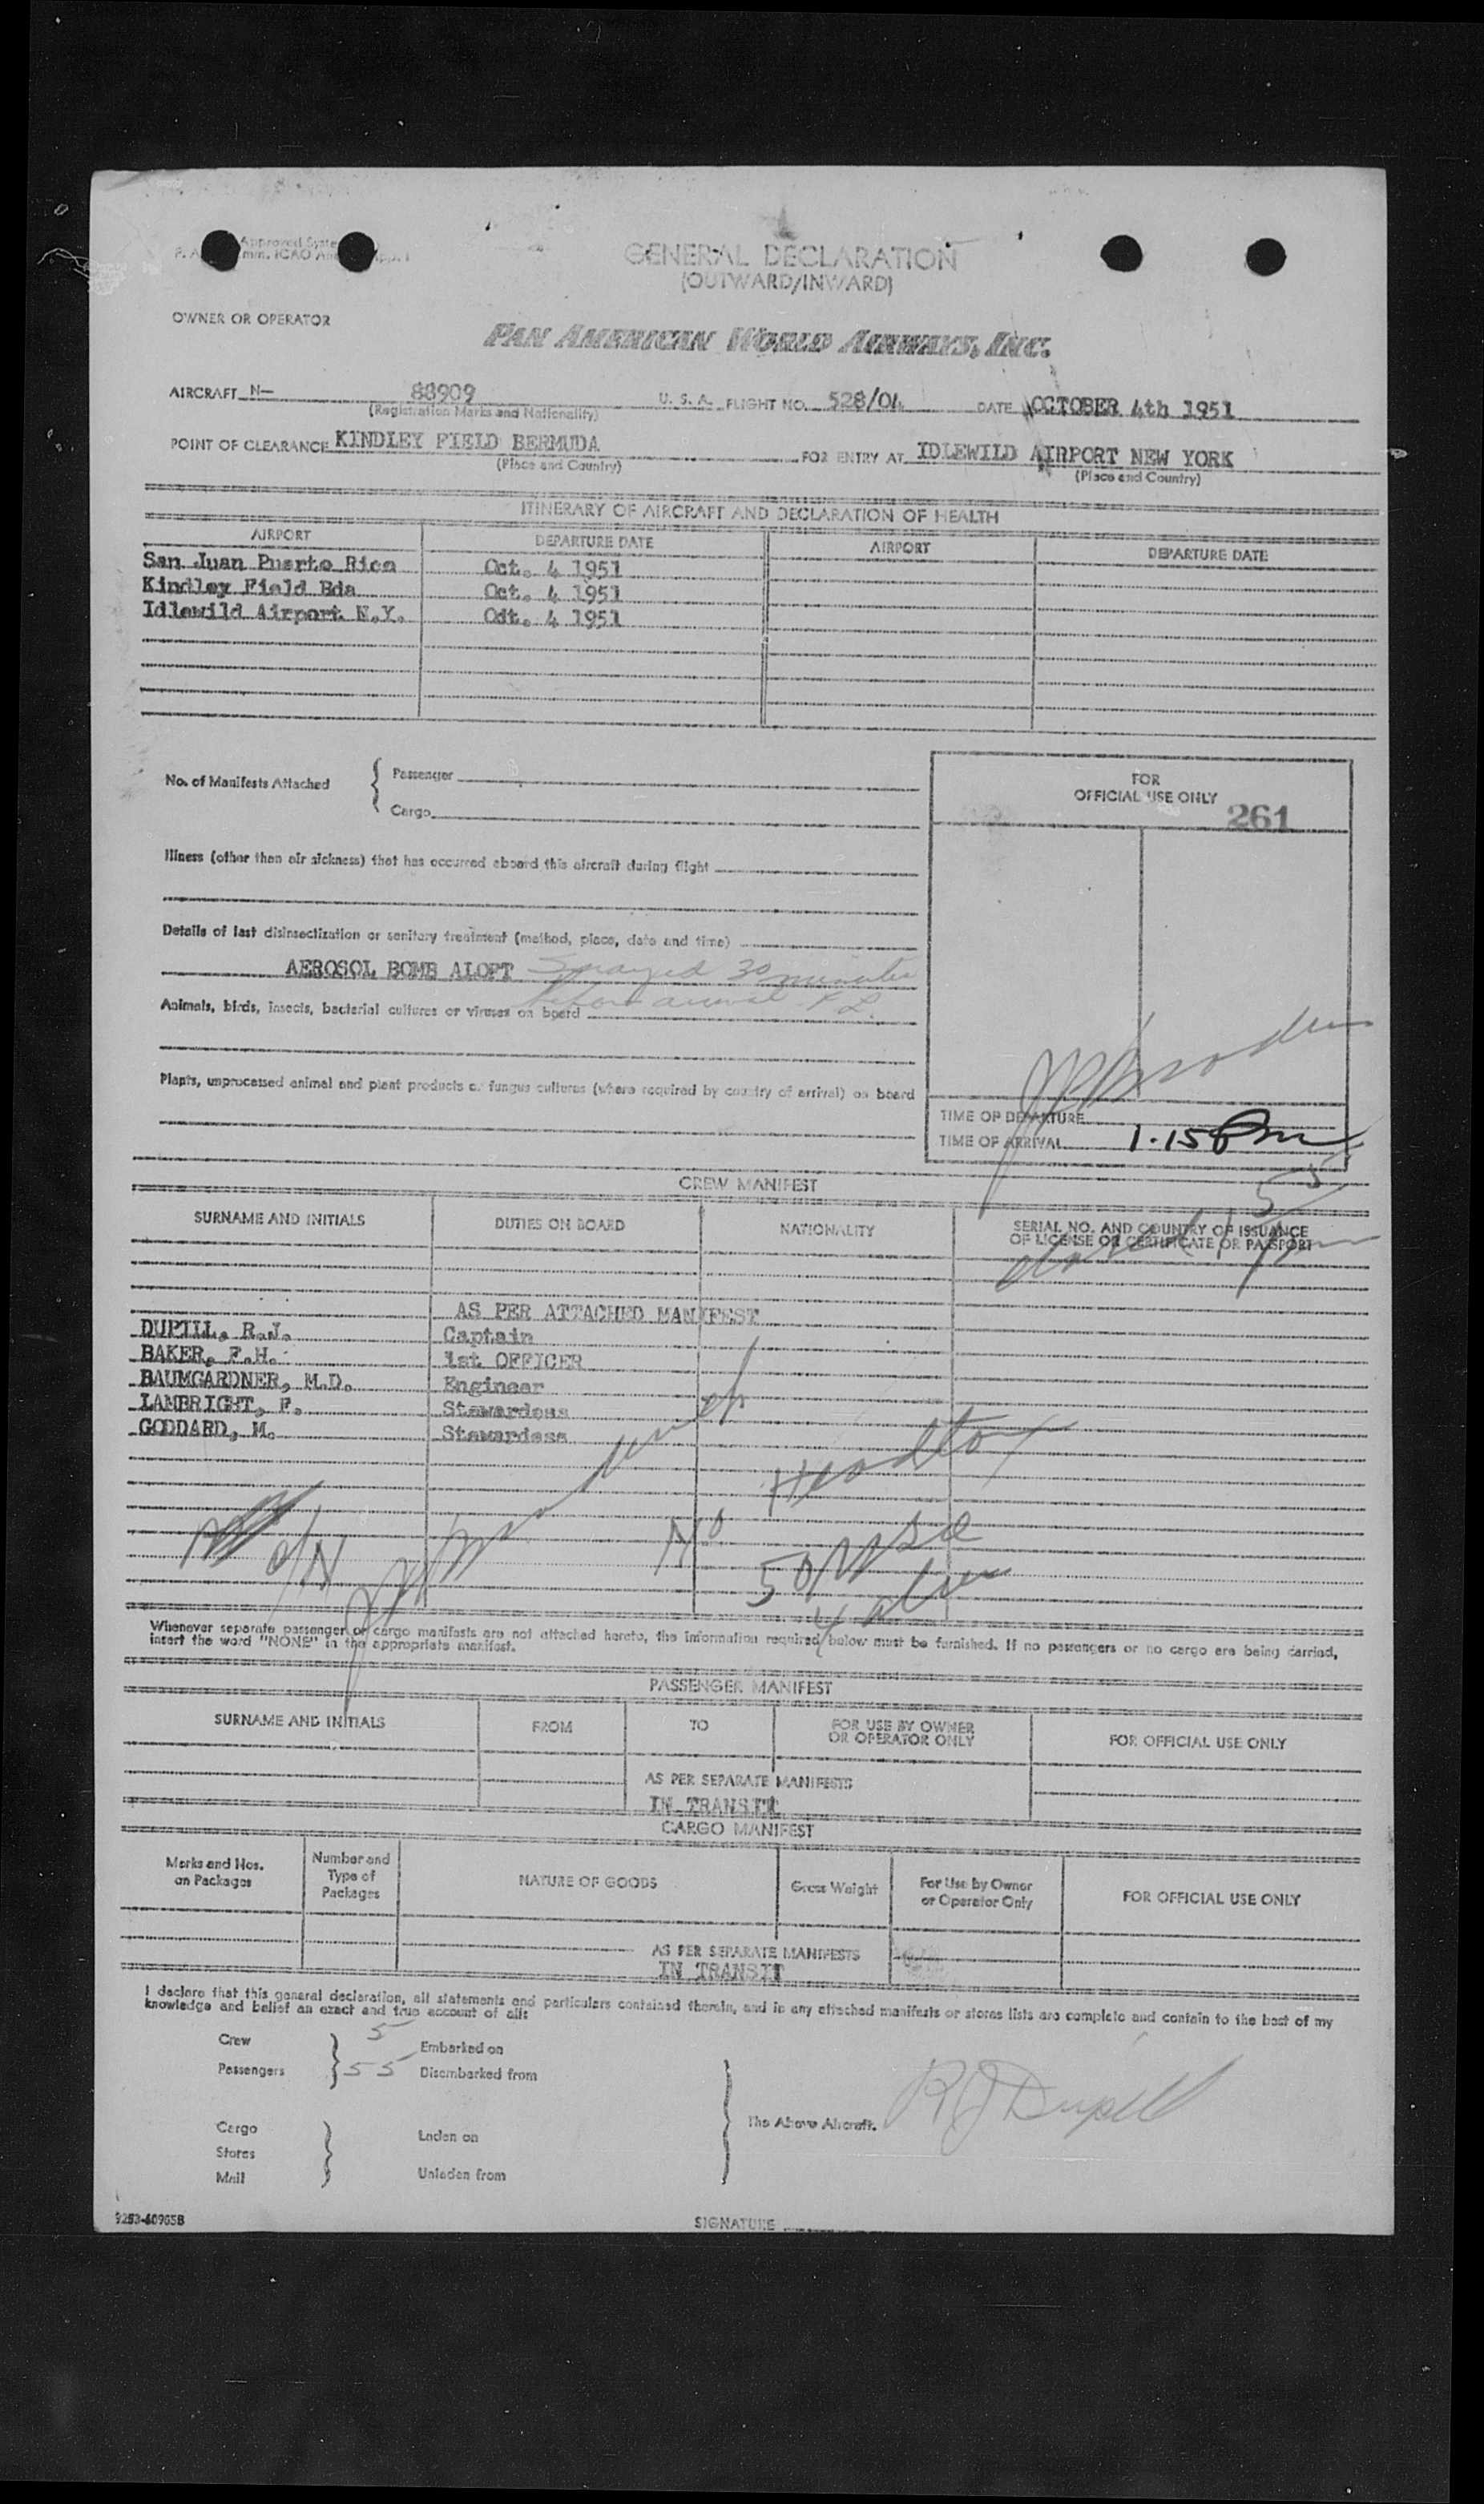 Approved Syste
GENERAL DECLARATION
(OUTWARD/INWARD)
OWNER OR OPERATOR
PAN AMERICAN WORLD AIRWAYS, INC.
AIRCRAFT N- 88909 U. S. A. FLIGHT NO. 528/04 DATE OCTOBER 4th 1951
(Registration Marks and Nationality)
POINT OF CLEARANCE KINDLEY FIELD BERMUDA FOR ENTRY AT IDLEWILD AIRPORT NEW YORK
(Place and Country) (Place and Country)
ITINERARY OF AIRCRAFT AND DECLARATION OF HEALTH
AIRPORT DEPARTURE DATE AIRPORT DEPARTURE DATE
San Juan Puerto Rico Oct. 4 1951
Kindley Field Bda Oct. 4 1951
Idlewild Airport N.Y. Odt. 4 1951
No. of Manifests Attached { Passenger
Cargo
FOR
OFFICIAL USE ONLY
261
Illness (other than air sickness) that has occurred aboard this aircraft during flight
Details of last disinsectization or sanitary treatment (method, place, date and time)
AEROSOL BOMB ALOFT Sprayed 30 minutes
before arrival
Animals, birds, insects, bacterial cultures or viruses on board
Plants, unprocessed animal and plant products or fungus cultures (where required by country of arrival) on board
TIME OF DEPARTURE
TIME OF ARRIVAL 1.15 Pm
CREW MANIFEST
SURNAME AND INITIALS DUTIES ON BOARD NATIONALITY SERIAL NO. AND COUNTRY OF ISSUANCE
OF LICENSE OR CERTIFICATE OR PASSPORT
AS PER ATTACHED MANIFEST
DUPILL, R.J. Captain
BAKER, F.H. 1st OFFICER
BAUMGARDNER, M.D. Engineer
LAMBRIGHT, F. Stewardess
GODDARD, M. Stewardess
No
50
4
Whenever separate passenger or cargo manifests are not attached hereto, the information required below must be furnished. If no passengers or no cargo are being carried,
insert the word "NONE" in the appropriate manifest.
PASSENGER MANIFEST
SURNAME AND INITIALS FROM TO FOR USE BY OWNER
OR OPERATOR ONLY FOR OFFICIAL USE ONLY
AS PER SEPARATE MANIFESTS
IN TRANSIT
CARGO MANIFEST
Marks and Nos.
on Packages Number and
Type of
Packages NATURE OF GOODS Gross Weight For Use by Owner
or Operator Only FOR OFFICIAL USE ONLY
AS PER SEPARATE MANIFESTS
IN TRANSIT
I declare that this general declaration, all statements and particulars contained therein, and in any attached manifests or stores lists are complete and contain to the best of my
knowledge and belief an exact and true account of all:
Crew 5 Embarked on
Passengers 55 Disembarked from
The Above Aircraft. RJ Dupill
Cargo
Stores
Mail
Laden on
Unladen from
9253-60965B
SIGNATURE